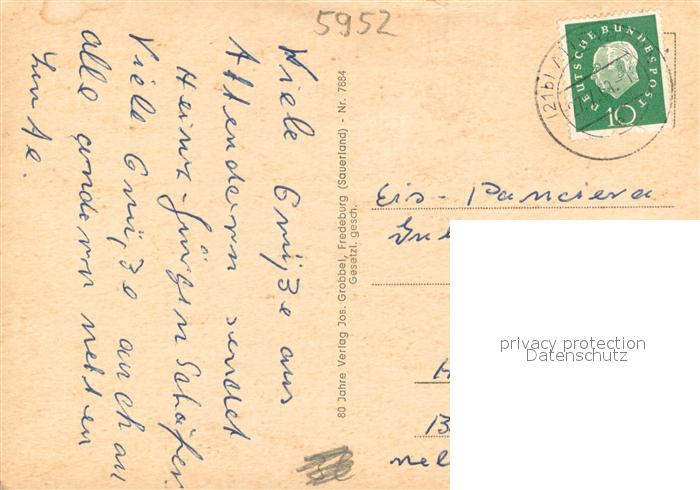 5952
Viele Grüße aus
Attendorn sendet
Heinz-Jürgen Schäfer
Viele Grüße auch an
alle andern netten
Leute.
80 Jahre Verlag Jos. Grobbel, Fredeburg (Sauerland) - Nr. 7884
Gesetzl. gesch.
DEUTSCHE BUNDESPOST
10
(21b)
Eis- Panciera
privacy protection
Datenschutz